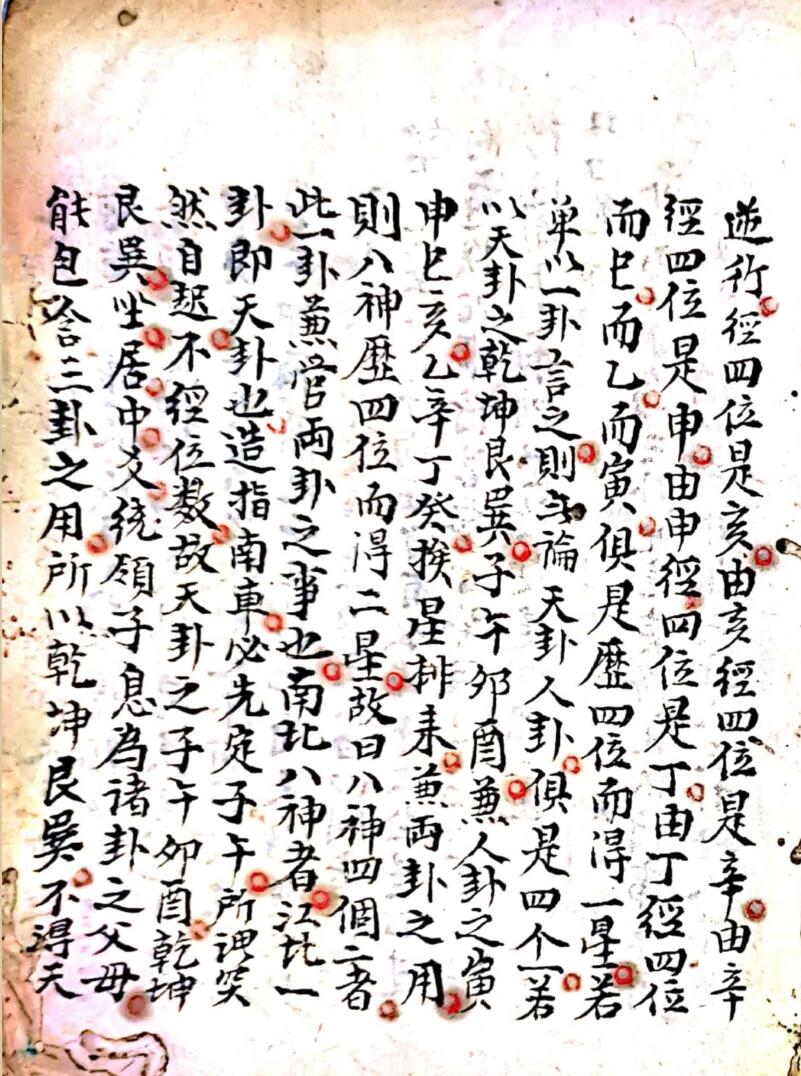 逆行經四位是亥由亥經四位是辛由辛
經四位是申由申經四位是丁由丁經四位
而巳而乙而寅俱是歷四位而淂一星若
单以一卦言之則無論天卦人卦俱是四个一若
以天卦之乾坤艮巽子午卯酉兼人卦之寅
申巳亥乙辛丁癸挨星排来兼両卦之用
則八神歷四位而淂二星故曰八神四個二者
此一卦兼管両卦之事也南北八神者江北一
卦即天卦也造指南車必先定子午所謂笑
然自起不經位数故天卦之子午卯酉乾坤
艮巽坐居中爻統領子息為诸卦之父母
能包含三卦之用所以乾坤艮巽不淂天